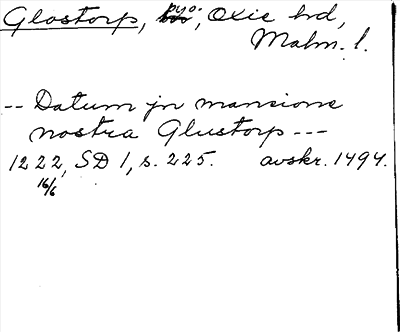 Glostorp, pyo., Oxie hrd,
Malm. l.
-- Datum jn mansione
nostra Glustorp ---
1222, SD 1, s. 225. avskr. 1494.
16/6